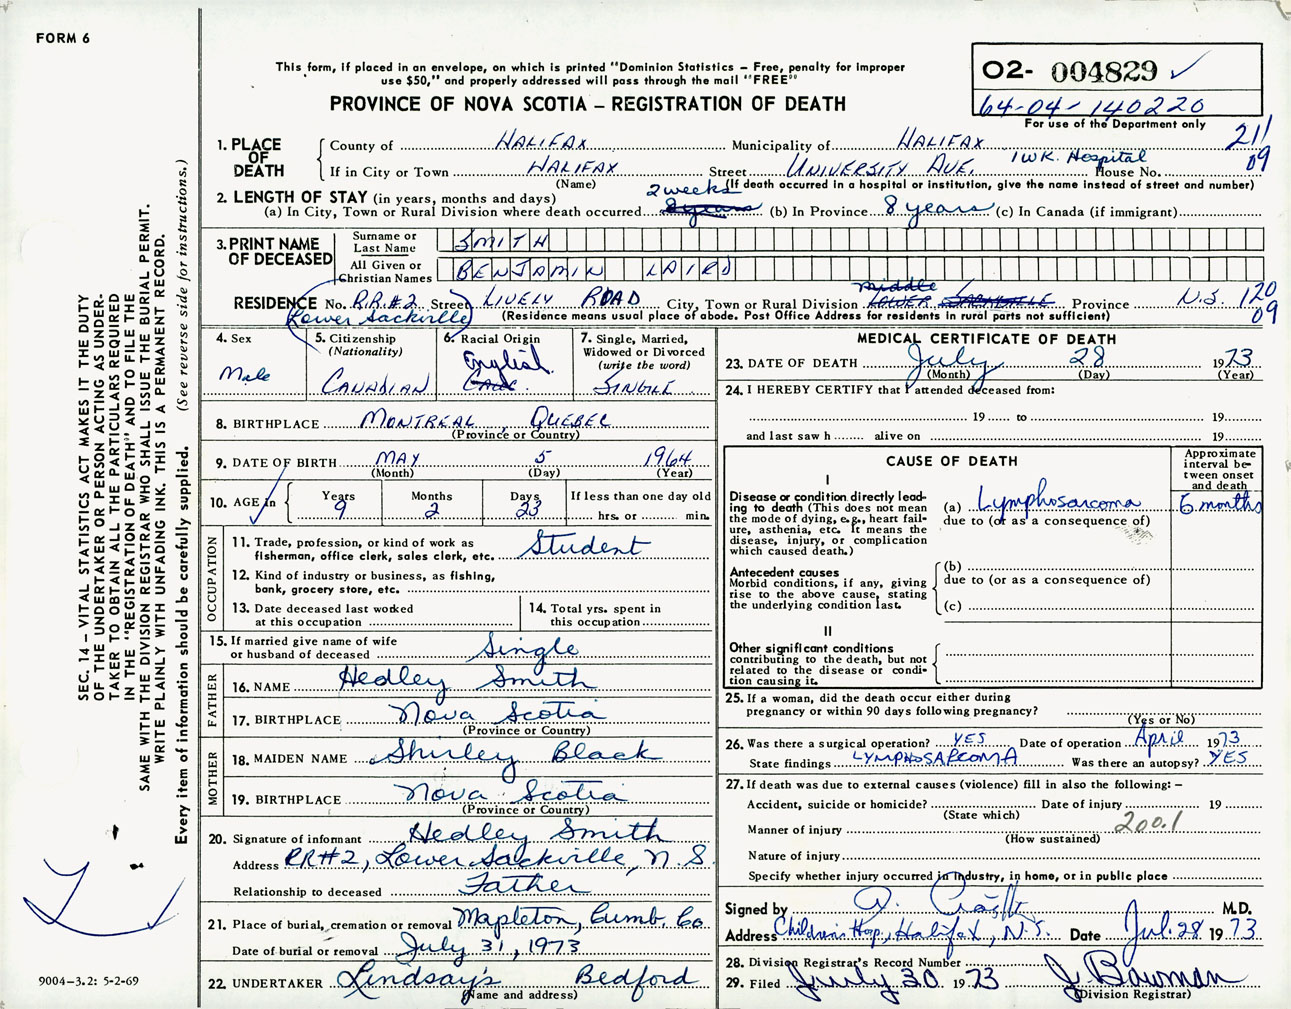 FORM 6
This form, if placed in an envelope, on which is printed "Dominion Statistics – Free, penalty for improper
use $50," and properly addressed will pass through the mail "FREE"
PROVINCE OF NOVA SCOTIA – REGISTRATION OF DEATH
O2- 004829 ✓
64-04-140220
For use of the Department only
SEC. 14 – VITAL STATISTICS ACT MAKES IT THE DUTY
OF THE UNDERTAKER OR PERSON ACTING AS UNDER-
TAKER TO OBTAIN ALL THE PARTICULARS REQUIRED
IN THE "REGISTRATION OF DEATH" AND TO FILE THE
SAME WITH THE DIVISION REGISTRAR WHO SHALL ISSUE THE BURIAL PERMIT.
WRITE PLAINLY WITH UNFADING INK. THIS IS A PERMANENT RECORD.
Every item of information should be carefully supplied. (See reverse side for instructions.)
1. PLACE OF DEATH
County of HALIFAX Municipality of HALIFAX 211
If in City or Town HALIFAX Street UNIVERSITY AVE. IWK. Hospital House No. 09
(Name) (If death occurred in a hospital or institution, give the name instead of street and number)
2. LENGTH OF STAY (in years, months and days)
(a) In City, Town or Rural Division where death occurred 2 weeks 8 years (b) In Province 8 years (c) In Canada (if immigrant)
3. PRINT NAME OF DECEASED
Surname or Last Name SMITH
All Given or Christian Names BENJAMIN LAIRD
RESIDENCE No. R.R.#2 Street LIVELY ROAD City, Town or Rural Division middle LOWER SACKVILLE Province N.S. 120
Lower Sackville (Residence means usual place of abode. Post Office Address for residents in rural parts not sufficient) 09
4. Sex
Male
5. Citizenship
(Nationality)
CANADIAN
6. Racial Origin
English
7. Single, Married,
Widowed or Divorced
(write the word)
SINGLE
8. BIRTHPLACE MONTREAL, QUEBEC
(Province or Country)
9. DATE OF BIRTH MAY 5 1964
(Month) (Day) (Year)
10. AGE in
Years 9
Months 2
Days 23
If less than one day old
hrs. or min.
OCCUPATION
11. Trade, profession, or kind of work as
fisherman, office clerk, sales clerk, etc. Student
12. Kind of industry or business, as fishing,
bank, grocery store, etc.
13. Date deceased last worked
at this occupation
14. Total yrs. spent in
this occupation
15. If married give name of wife
or husband of deceased Single
FATHER
16. NAME Hedley Smith
17. BIRTHPLACE Nova Scotia
(Province or Country)
MOTHER
18. MAIDEN NAME Shirley Black
19. BIRTHPLACE Nova Scotia
(Province or Country)
20. Signature of informant Hedley Smith
Address RR#2, Lower Sackville, N.S.
Relationship to deceased Father
21. Place of burial, cremation or removal Mapleton, Cumb. Co.
Date of burial or removal July 31, 1973
22. UNDERTAKER Lindsay's Bedford
(Name and address)
MEDICAL CERTIFICATE OF DEATH
23. DATE OF DEATH July 28 1973
(Month) (Day) (Year)
24. I HEREBY CERTIFY that I attended deceased from:
19 to 19
and last saw h alive on 19
CAUSE OF DEATH
Approximate
interval be-
tween onset
and death
I
Disease or condition directly lead-
ing to death (This does not mean
the mode of dying, e.g., heart fail-
ure, asthenia, etc. It means the
disease, injury, or complication
which caused death.)
(a) Lymphosarcoma 6 months
due to (or as a consequence of)
Antecedent causes
Morbid conditions, if any, giving
rise to the above cause, stating
the underlying condition last.
(b)
due to (or as a consequence of)
(c)
II
Other significant conditions
contributing to the death, but not
related to the disease or condi-
tion causing it.
25. If a woman, did the death occur either during
pregnancy or within 90 days following pregnancy?
(Yes or No)
26. Was there a surgical operation? YES Date of operation April 1973
State findings LYMPHOSARCOMA Was there an autopsy? YES
27. If death was due to external causes (violence) fill in also the following: –
Accident, suicide or homicide? Date of injury 19
(State which)
Manner of injury 200.1
(How sustained)
Nature of injury
Specify whether injury occurred in industry, in home, or in public place
Signed by M.D.
Address Children's Hosp., Halifax, N.S. Date Jul. 28 1973
28. Division Registrar's Record Number
29. Filed July 30 1973 J Bowman
(Division Registrar)
9004-3.2: 5-2-69